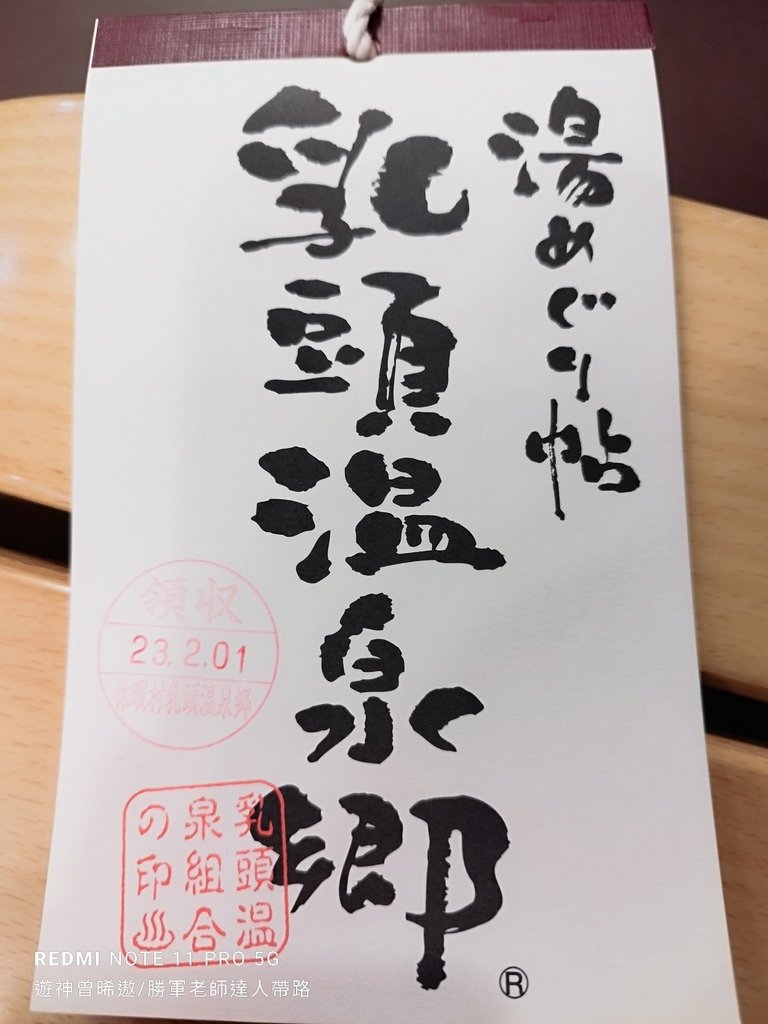 湯めぐり帖
乳頭温泉郷
®
領収
23.2.01
休暇村乳頭温泉郷
乳頭温
泉組合
の印♨
REDMI NOTE 11 PRO 5G
遊神曾晞遨/勝軍老師達人帶路